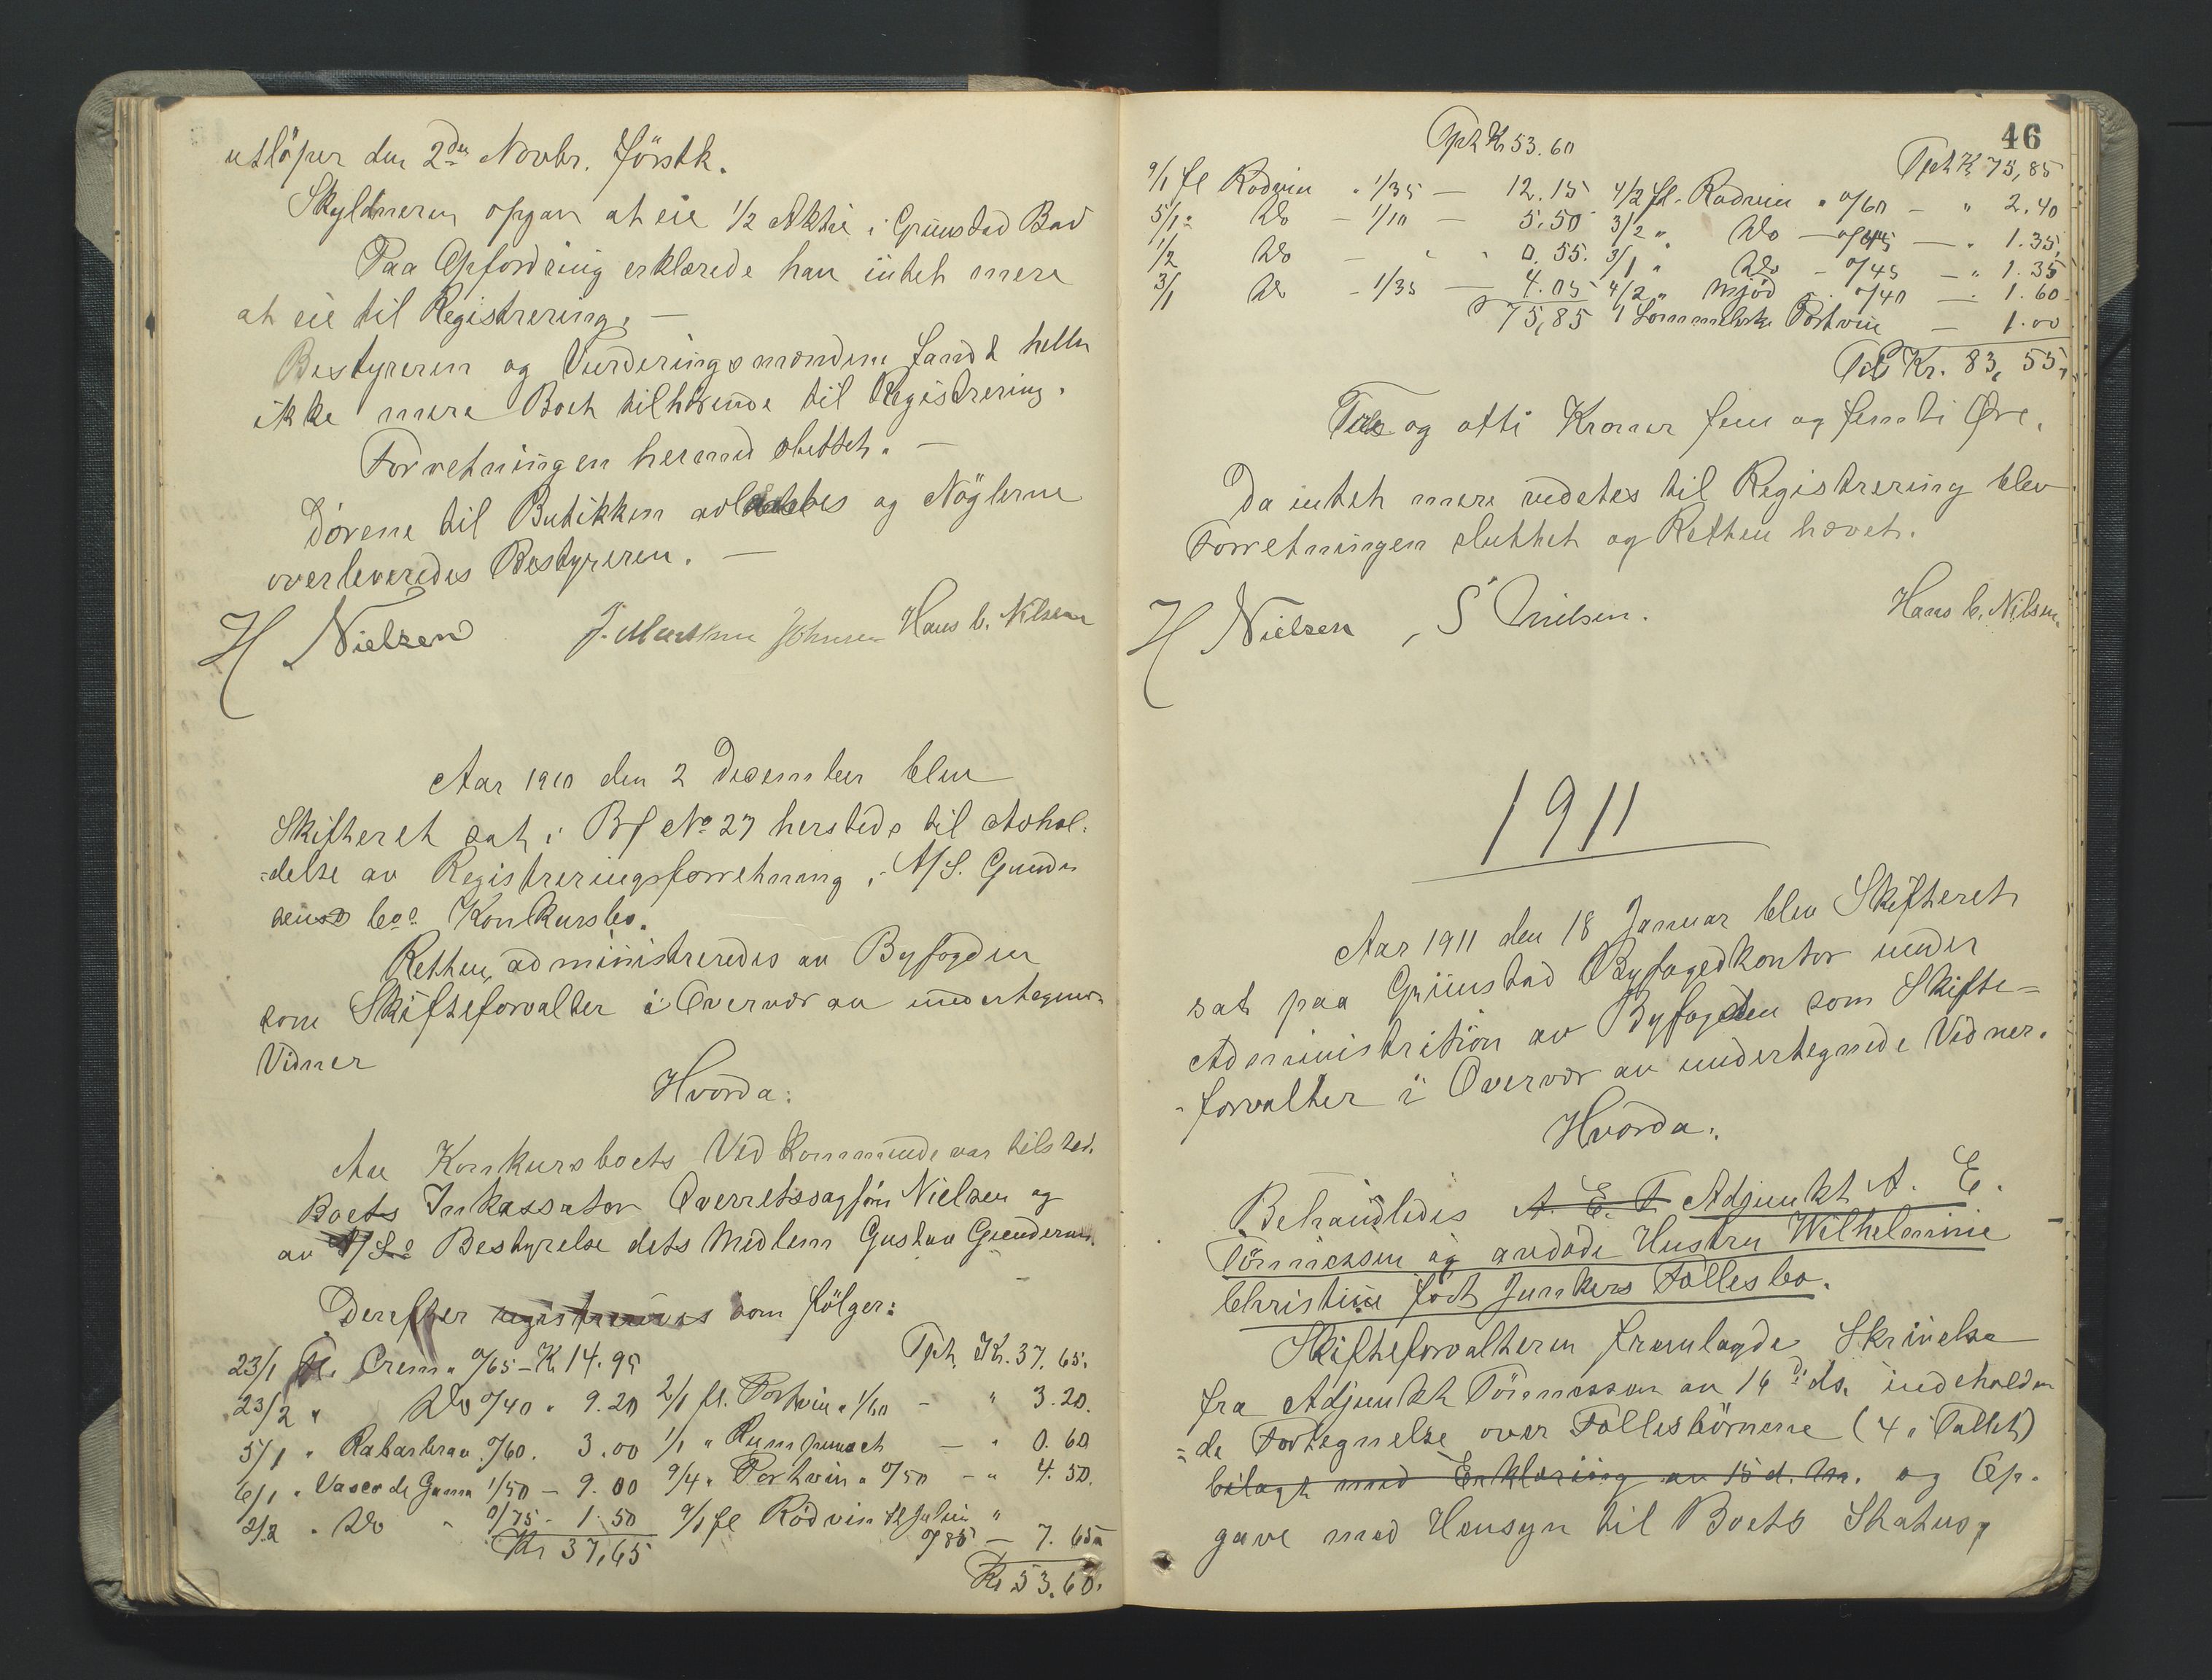 utlöper den 2den Novbr. förstk.
Skyldneren opgav at eie 1/2 Aktie i Grimstad Bad
Paa Opfordring erklærede han intet mere
at eie til Registrering. —
Bestyreren og Vurderingsmændene fandt heller
ikke mere Boet tilhörende til Registrering.
Forretningen hermed sluttet. —
Dörene til Butikken avlaastes og Nöglerne
overleveredes Bestyreren. —
H Nielsen J. Johnsen Hans C. Nilsen
Aar 1910 den 2 December blev
Skifteret sat i Bf No 27 hersteds til Avhol-
-delse av Registreringsforretning i A/S. Gunder
sens Co.s Konkursbo.
Retten administreredes av Byfogden
som Skifteforvalter i Overvær av undertegnede
Vidner
Hvorda:
Av Konkursboets Vedkommende var tilsted.
Boets Inkassator Overretssagförer Nielsen og
av A/S.s Bestyrelse dets Medlem Gustav Gundersen.
Derefter registreredes som fölger:
23/1 Fl. Crem " 0/65 – Kr 14.95
23/2 " Do 0/40 " 9.20
5/1 " Rabarbra " 0/60. 3.00
6/1 " Vasco de Gama 1/50 – 9.00
2/2 " Do " 0/75 - 1.50
Kr 37,65
Tpt Kr. 37.65.
2/1 fl. Portvin " 1/60 – " 3.20.
1/1 " Rumpunsch — " 0.60
9/4 " Portvin " 0/50 – " 4.50.
9/1 fl Rödvin St Julien "
0/85 — 7.65
Kr 53.60.
46
Tpt Kr 53.60
9/1 fl Rödvin " 1/35 — 12.15
5/1 " Do – 1/10 – 5.50
1/2 Do – " " 0.55.
3/1 Do – 1/35 — 4.05
75,85
Tpt Kr 75,85
4/2 fl. Rödvin " 0/60 – " 2.40
3/2 " Do — 0/45 — " 1.35
3/1 " Do – 0/45 – " 1.35
4/2 " Mjöd " 0/40 — " 1.60
1 Lommeflaske Portvin — 1.00
Tils Kr. 83,55.
Tre og otti Kroner fem og femti Øre.
Da intet mere vedetes til Registrering blev
Forretningen sluttet og Retten hævet.
H Nielsen, S Nielsen. Hans C. Nilsen.
1911
Aar 1911 den 18 Januar blev Skifteret
sat paa Grimstad Byfogedkontor under
Administrition av Byfogden som Skifte=
-forvalter i Overvær av undertegnede Vidner.
Hvorda:
Behandledes A. E. T Adjunkt A. E.
Tönnessen og avdöde Hustru Wilhelmine
Christine födt Junkers Fællesbo.
Skifteforvalteren fremlagde Skrivelse
fra Adjunkt Tönnessen av 16 ds. indeholden
=de Fortegnelse over Fællesbörnene (4 i Tallet)
bilagt med Erklæring av 15 d. M. og Op.
gave med Hensyn til Boets Status,